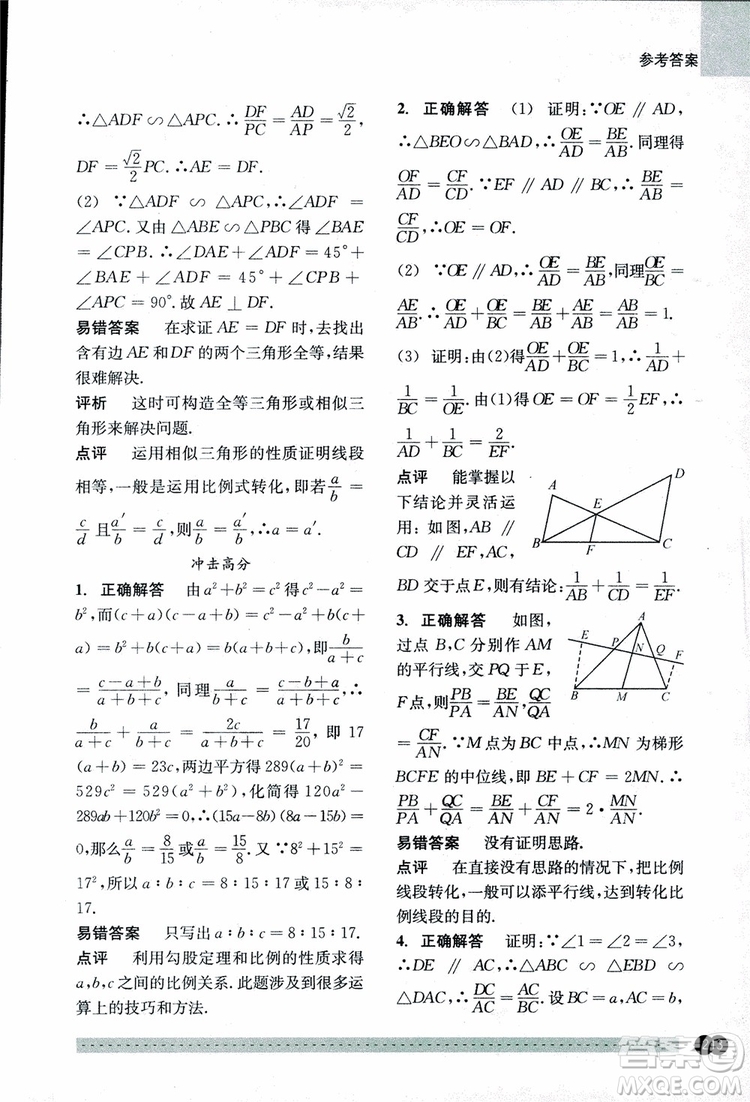 参考答案
∴△ADF∽△APC.∴DF/PC=AD/AP=√2/2,
DF=√2/2PC.∴AE=DF.
(2) ∵△ADF∽△APC,∴∠ADF=
∠APC.又由△ABE∽△PBC得∠BAE
=∠CPB.∴∠DAE+∠ADF=45°+
∠BAE+∠ADF=45°+∠CPB+
∠APC=90°.故AE⊥DF.
易错答案 在求证AE=DF时,去找出
含有边AE和DF的两个三角形全等,结果
很难解决.
评析 这时可构造全等三角形或相似三
角形来解决问题.
点评 运用相似三角形的性质证明线段
相等,一般是运用比例式转化,即若a/b=
c/d且a′/b=c/d,则a/b=a′/b,∴a=a′.
冲击高分
1. 正确解答 由a²+b²=c²得c²-a²=
b²,而(c+a)(c-a+b)=c²-a²+b(c+
a)=b²+b(c+a)=b(a+b+c),即b/(a+c)
=(c-a+b)/(a+b+c),同理a/(b+c)=(c-b+a)/(a+b+c),∴
b/(a+c)+a/(b+c)=2c/(a+b+c)=17/20,即17
(a+b)=23c,两边平方得289(a+b)²=
529c²=529(a²+b²),化简得120a²-
289ab+120b²=0,∴(15a-8b)(8a-15b)=
0,那么a/b=8/15或a/b=15/8.又∵8²+15²=
17²,所以a:b:c=8:15:17或15:8:
17.
易错答案 只写出a:b:c=8:15:17.
点评 利用勾股定理和比例的性质求得
a,b,c之间的比例关系.此题涉及到在运
算上的技巧和方法.
2. 正确解答 (1) 证明:∵OE∥AD,
∴△BEO∽△BAD,∴OE/AD=BE/AB.同理得
OF/AD=CF/CD.∵EF∥AD∥BC,∴BE/AB=
CF/CD,∴OE=OF.
(2) ∵OE∥AD,∴OE/AD=BE/AB,同理OE/BC=
AE/AB.∴OE/AD+OE/BC=BE/AB+AE/AB=AB/AB=1.
(3) 证明:由(2)得OE/AD+OE/BC=1,∴1/AD+
1/BC=1/OE.又由(1)得OE=OF=1/2EF,∴
1/AD+1/BC=2/EF.
点评 能掌握以
下结论并灵活运
用:如图,AB∥
CD∥EF,AC,
BD交于点E,则有结论:1/AB+1/CD=1/EF.
A
B
C
D
E
F
3. 正确解答 如图,
过点B,C分别作AM
的平行线,交PQ于E,
F点,则PB/PA=BE/AN,QC/QA
=CF/AN.∵M点为BC中点,∴MN为梯形
BCFE的中位线,即BE+CF=2MN.∴
PB/PA+QC/QA=BE/AN+CF/AN=2·MN/AN.
A
E
P
N
Q
F
B
M
C
易错答案 没有证明思路.
点评 在直接没有思路的情况下,把比例
线段转化,一般可以添平行线,达到转化比
例线段的目的.
4. 正确解答 证明:∵∠1=∠2=∠3,
∴DE∥AC,∴△ABC∽△EBD∽
△DAC,∴DC/AC=AC/BC.设BC=a,AC=b,
答案圈
MXQE.COM